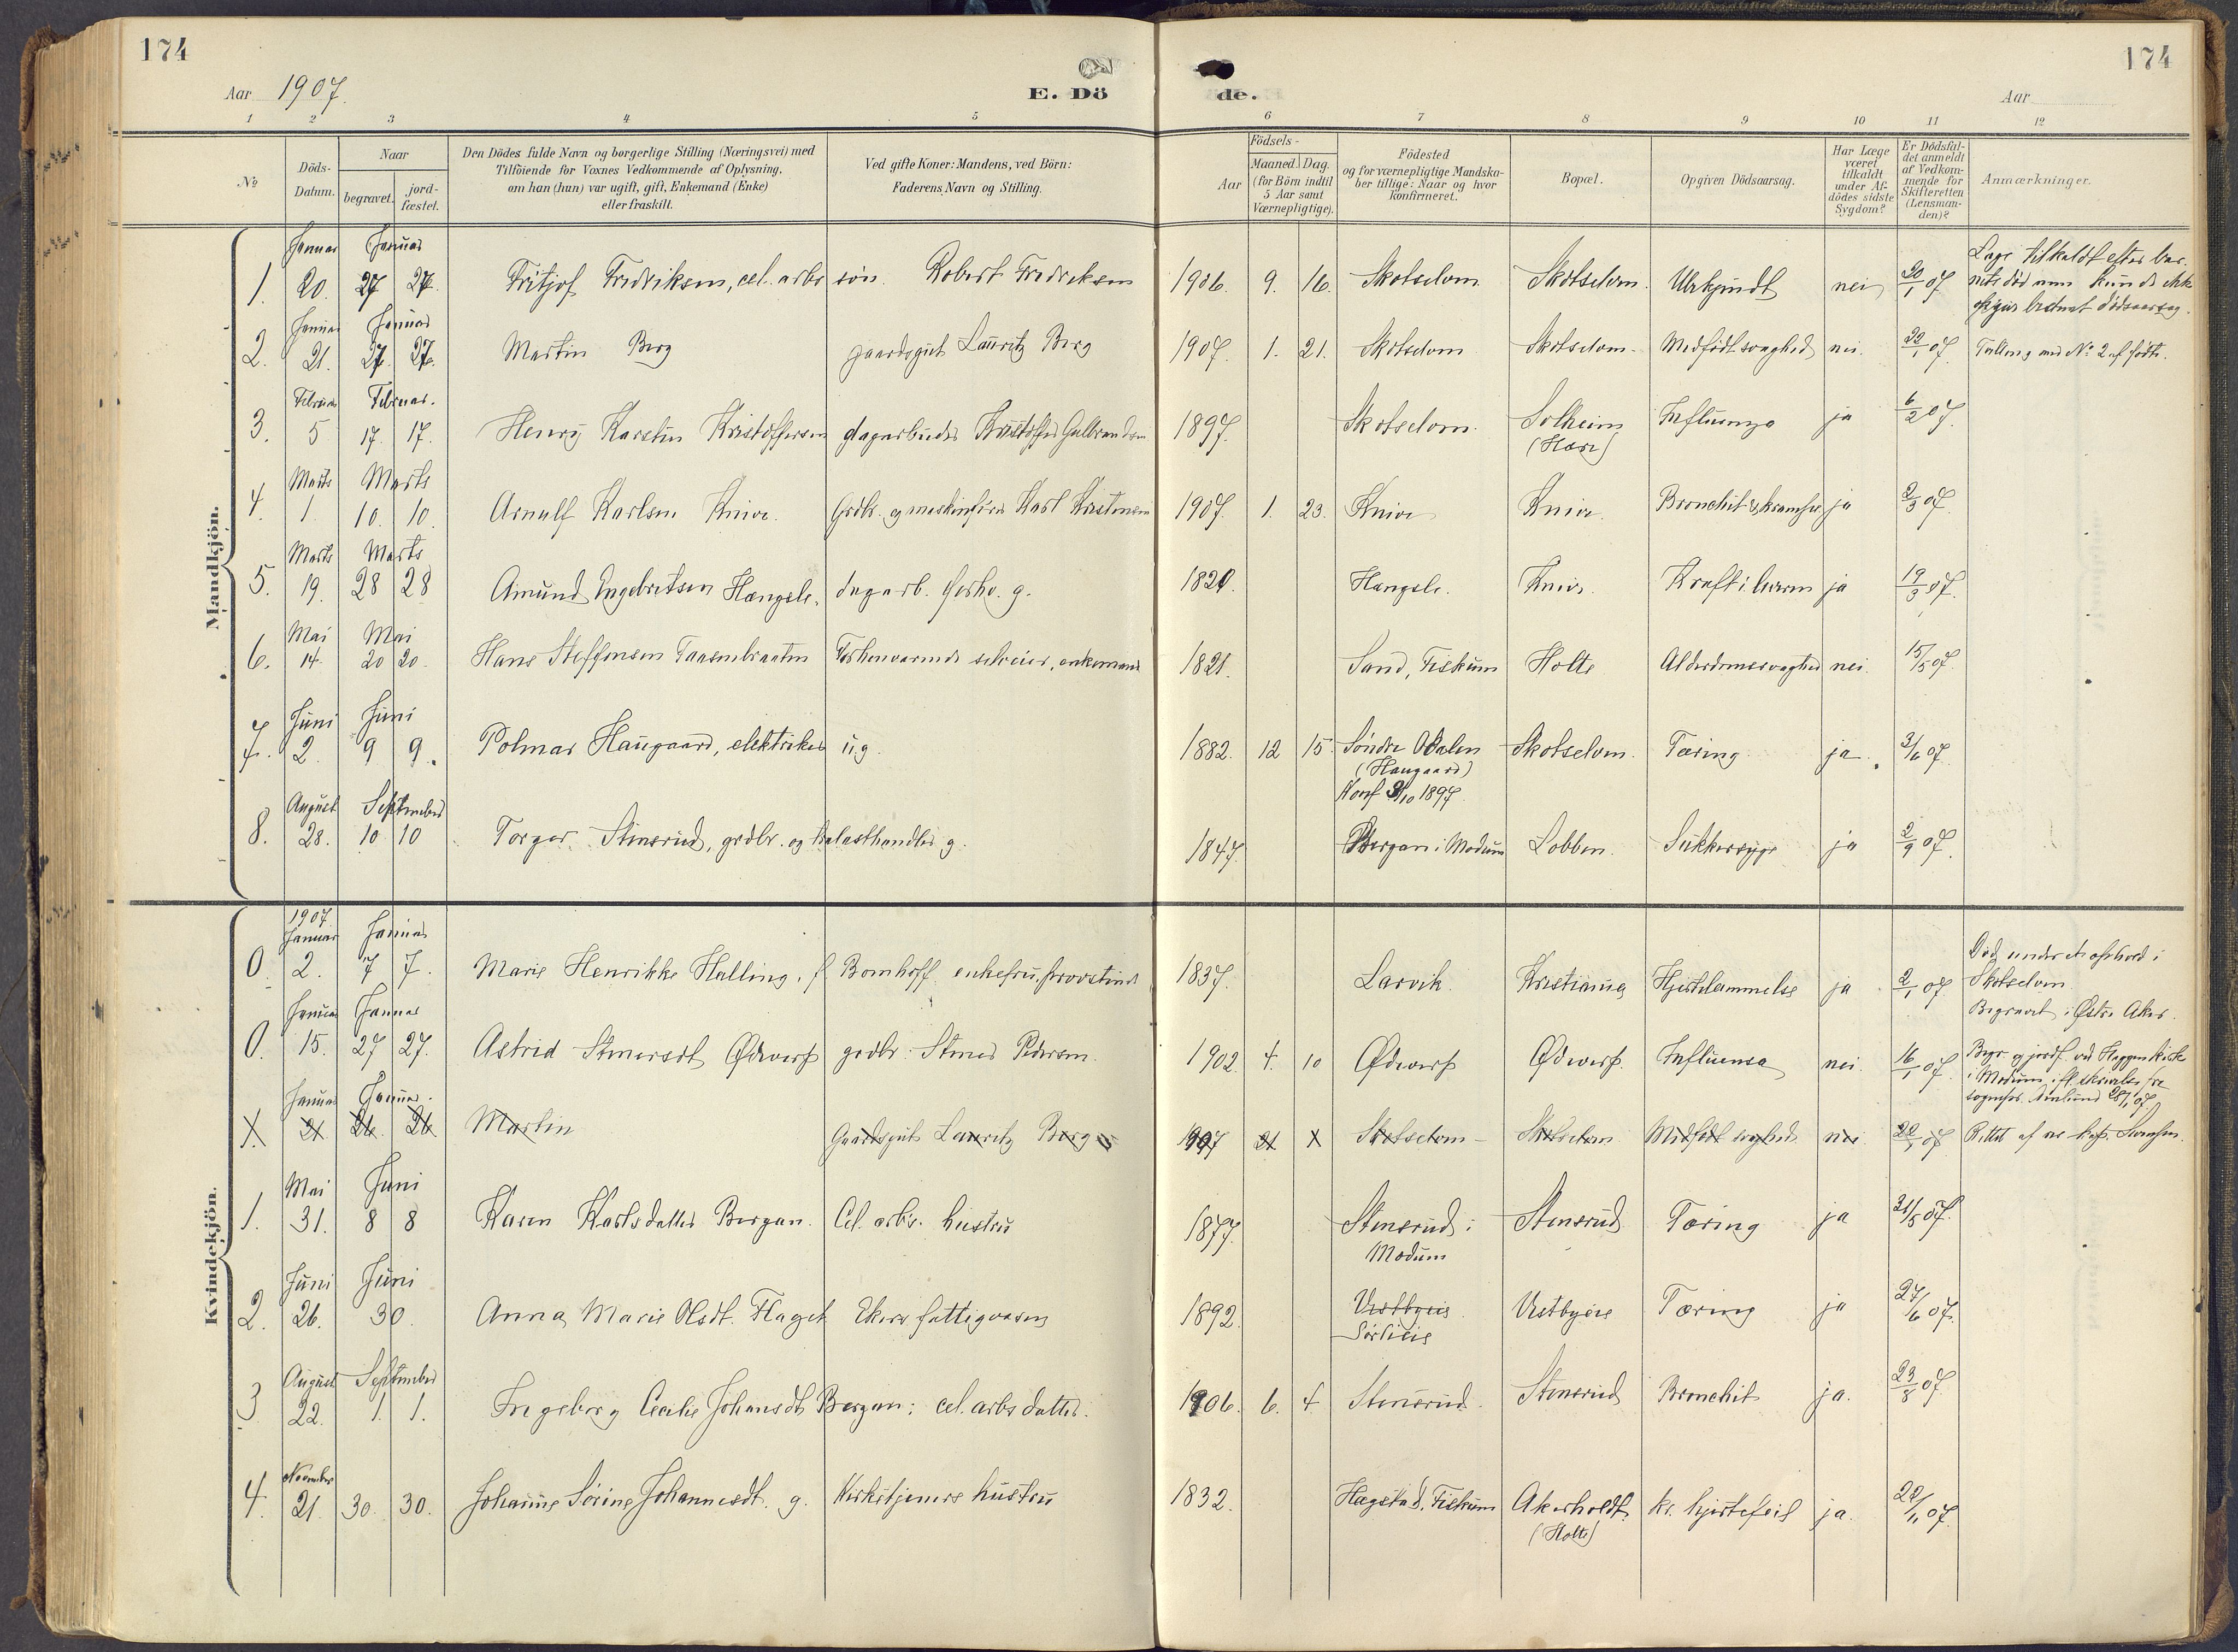 174
174
Aar 1907.
E. Dö
de.
Aar
1 2 3 4 5 6 7 8 9 10 11 12
No
Döds-
Datum.
Naar
begravet.
jord-
fæstet.
Den Dödes fulde Navn og borgerlige Stilling (Næringsvei) med
Tilföiende for Voxnes Vedkommende af Oplysning,
om han (hun) var ugift, gift, Enkemand (Enke)
eller fraskilt.
Ved gifte Koner: Mandens, ved Börn:
Faderens Navn og Stilling.
Födsels-
Aar
Maaned. Dag.
(for Börn indtil
5 Aar samt
Værnepligtige).
Födested
og for værnepligtige Mandska-
ber tillige: Naar og hvor
konfirmeret.
Bopæl.
Opgiven Dödsaarsag.
Har Læge
været
tilkaldt
under Af-
dödes sidste
Sygdom?
Er Dödsfal-
det anmeldt
af Vedkom-
mende for
Skifteretten
(Lensman-
den)?
Anmærkninger.
Mandkjön.
Januar Januar
1. 20. 27 27. Fritjof Fredriksen, cel. arbs søn. Robert Fredriksen 1906. 9. 16. Skotselven Skotselven. Ukjendt nei 20/1 07
Læge tilkaldt efter bar-
nets død men kunde ikke
opgive bestemt dødsaarsag.
Januar Januar
2. 21. 27. 27. Martin Berg gaardsgut Lauritz Berg 1907. 1. 21. Skotselven Skotselven. Medfødt svaghed nei. 22/1 07. Tvilling med No 2 af fødte.
Februar Februar.
3. 5 17. 17. Henry Karstin Kristoffersen dagarbeider Kristoffer Gulbrandsen 1897. Skotselven. Solheim Influenza ja 6/2 07.
(Hære)
Marts Marts
4. 1 10. 10. Arnulf Karlsen Knive. Grdbr. og maskinfører Karl Kristensen 1907. 1. 23. Knive Knive. Bronchit & krampe ja 2/3 07.
Marts Marts
5. 19. 28 28 Amund Engebretsen Hængsle. dagarb. g. 1820. Hængsle. Knive. Kræft i ja 19/3 07.
Mai Mai
6. 14. 20 20 Hans Steffensen Taasenbraaten Forhenværende selveier, enkemand 1821. Sand, Fiskum Holte Alderdomssvaghed nei. 15/5 07.
Juni Juni
7. 2. 9 9. Polmar Haugaard, elektriker ug. 1882. 12 15 Søndre Odalen Skotselven. Tæring ja. 3/6 07.
(Haugaard)
Konf 3/10 1897.
August September
8. 28. 10 10 Torger Stensrud, grdbr. og trælasthandler g. 1847. Bergan i Modum Lobben. Sukkersyge ja 2/9 07.
Kvindekjön.
1907
Januar Januar
0. 2. 7 7. Marie Henrikke Halling, f Bomhoff enkefru, provstinde 1837. Larvik. Kristiania Hjertelammelse ja 2/1 07
Død under et ophold i
Skotselven
Begravet i Østre Aker.
Januar Januar
0. 15. 27 27. Astrid Stenersdt Ødeverp grdbr. Stener Pedersen. 1902 4. 10 Ødeverp Ødeverp. Influensa nei. 16/1 07.
Begr. og jordf. ved Heggen kirke
i Modum ifl. skrivelse fra
sognepr. 28/1 07
Januar Januar.
X. 21 26. 26 Martin Gaardsgut Lauritz Berg 1907 21 X Skotselven Skotselven Medfødt svaghed nei. 22/1 07 Rettet af res. kap.
Mai Juni
1. 31. 8 8 Karen Karlsdatter Bergan. Cel. arb's. hustru 1877. Stensrud i Stensrud Tæring ja 31/5 07.
Modum
Juni Juni
2. 26. 30. Anna Marie Olsdt. Flaget Ekers fattigvæsen 1892. Vestbyeie Vestbyeie Tæring ja 27/6 07.
Sørlieie
August September
3 22. 1. 1. Ingeborg Cecilie Johansdt Bergan; cel. arbs datter. 1906. 6. 4 Stensrud. Stensrud Bronchit ja. 23/8 07
November
4. 21. 30. 30. Johanne Sørine Johannesdt. g. Kirketjeners hustru 1832. Hagstad, Fiskum Akerholdt. kr. hjertefeil ja. 22/11 07.
(Holte)